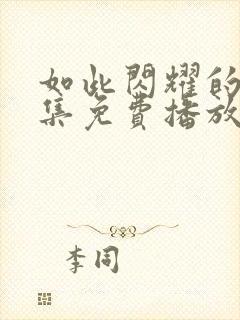 如此閃耀的
集免費播放
李同